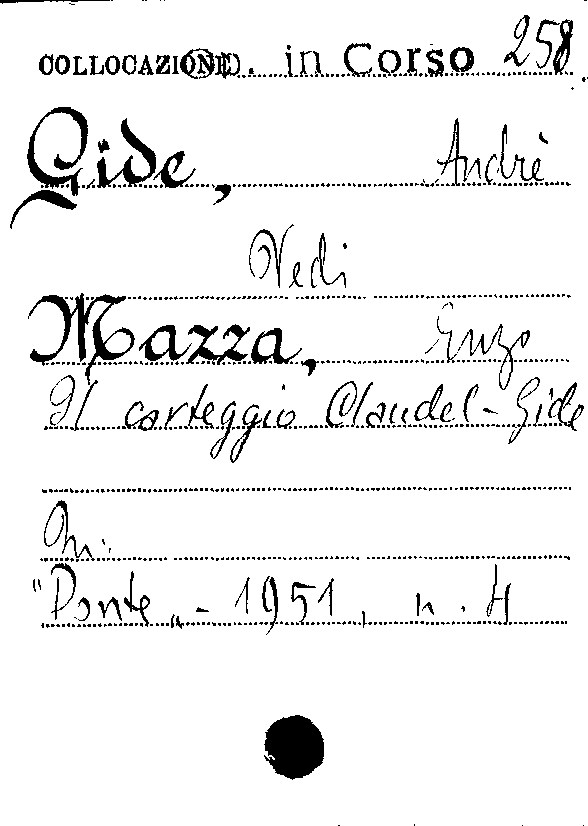 COLLOCAZIONE. in Corso 258
Gide, Andrè
Vedi
Mazza, Enzo
Il carteggio Claudel-Gide
In:
"Ponte„ - 1951, n. 4